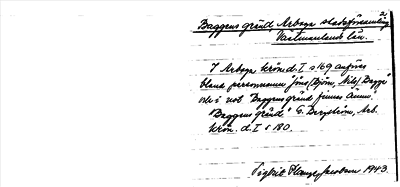 2.
Baggens gränd Arboga stadsförsamling
Västmanlands län.
I Arboga krön. d. I s 169 anföres
bland personnamn Jöns, Björn, Nils, Bagge
och i not "Baggens gränd finnes ännu."
"Baggens gränd" G. Bergström, Arb.
krön. d. I s 180.
Sigbrit Jacobson 1943.